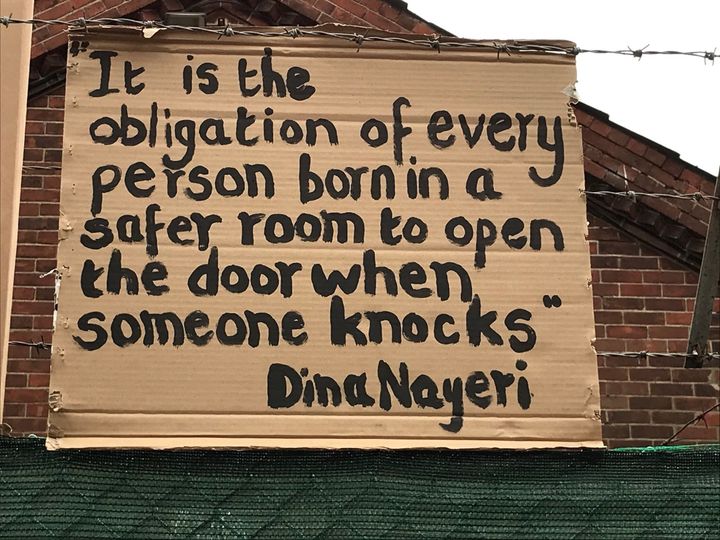 "It is the
obligation of every
person born in a
safer room to open
the door when
someone knocks"
Dina Nayeri